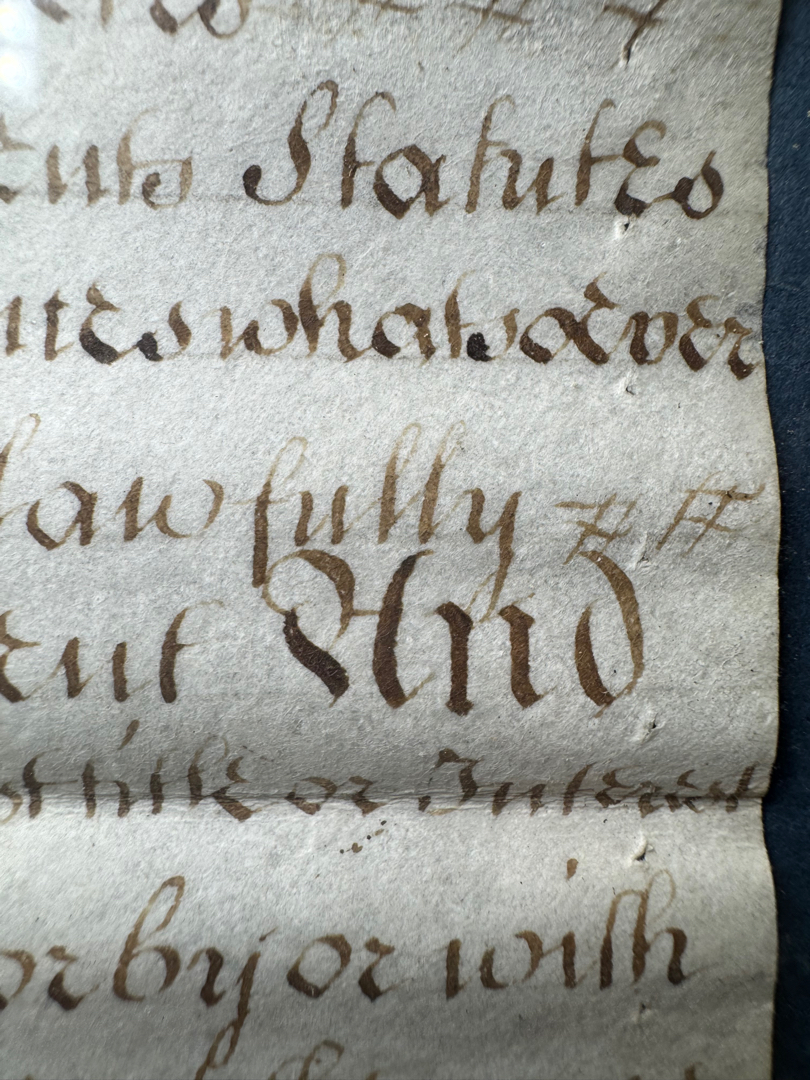 Statutes
whatsoever
lawfully
And
title or Interest
or by or with